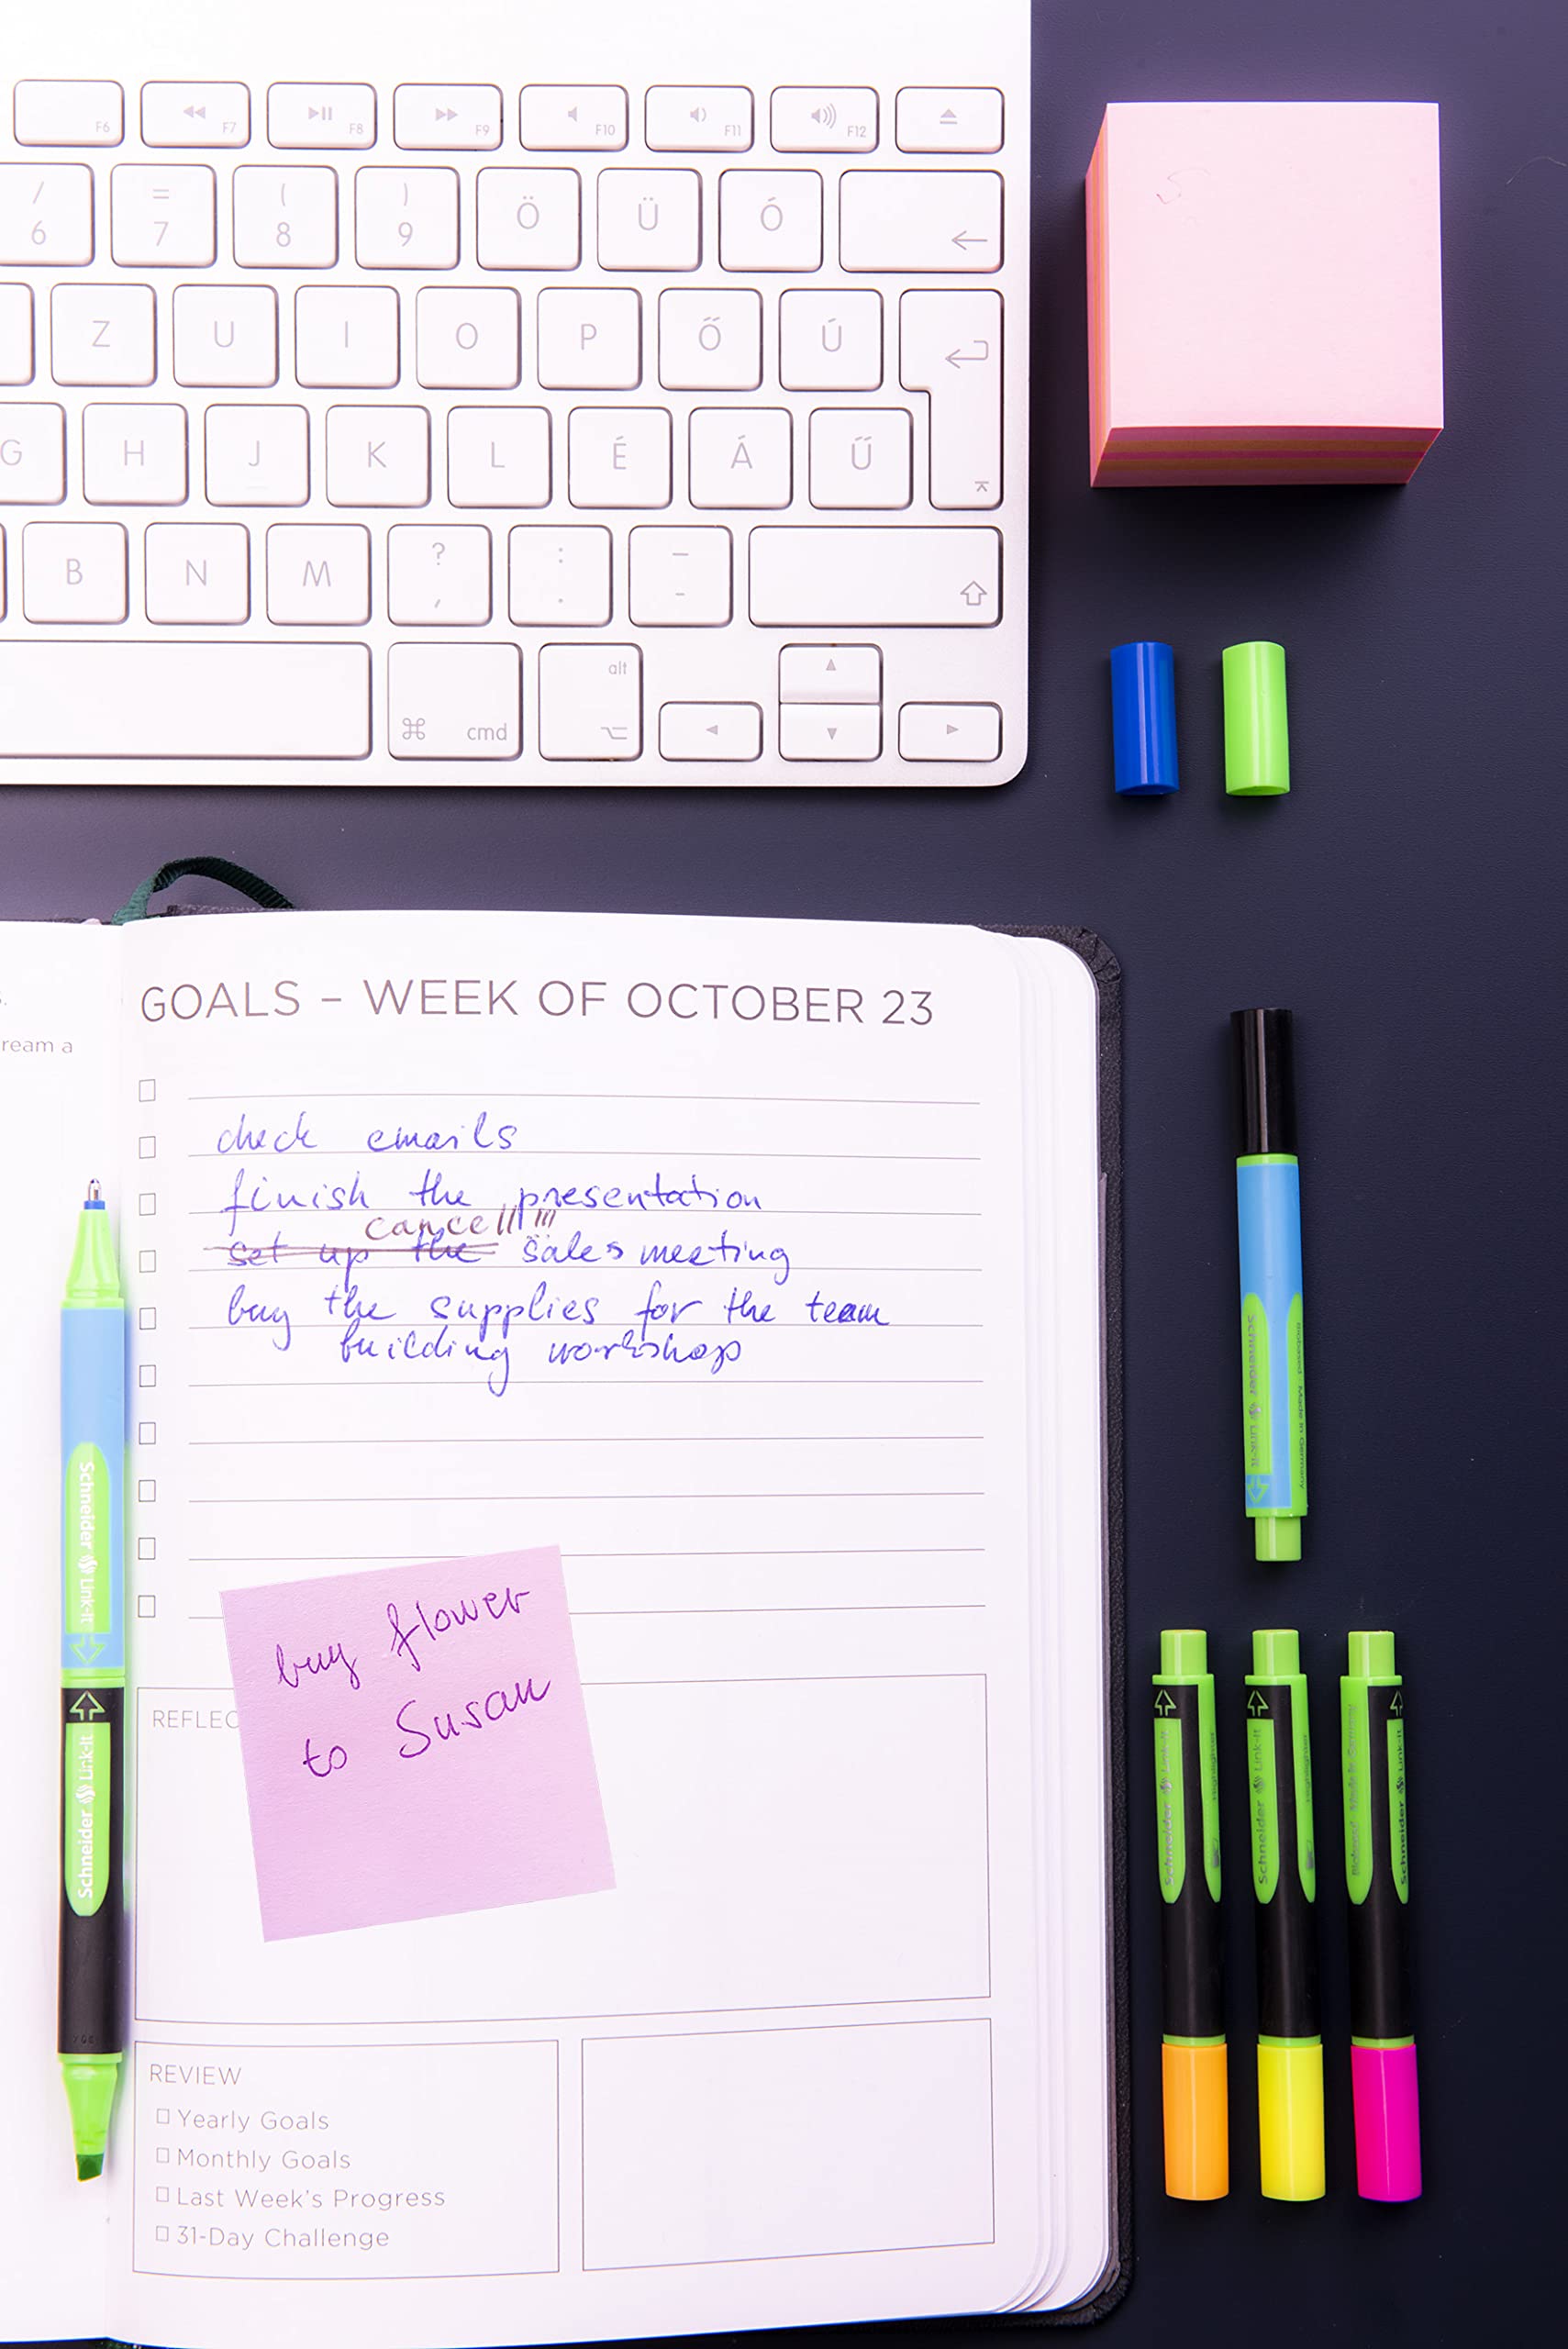 F6 F7 F8 F9 F10 F11 F12
/ = ( )
6 7 8 9 Ö Ü Ó
Z U I O P Ő Ú
G H J K L É Á Ű
B N M ? , : . _ -
alt
⌘ cmd
.
ream a
GOALS – WEEK OF OCTOBER 23
check emails
finish the presentation
cancel!!!!!
set up the sales meeting
buy the supplies for the team
building workshop
buy flower
to Susan
REFLEC
REVIEW
Yearly Goals
Monthly Goals
Last Week's Progress
31-Day Challenge
Schneider Link-It
Schneider Link-It
Schneider Link-It
Biobased Made in Germany
Schneider Link-It
Highlighter
Schneider Link-It
Highlighter
Biobased Made in Germany
Schneider Link-It